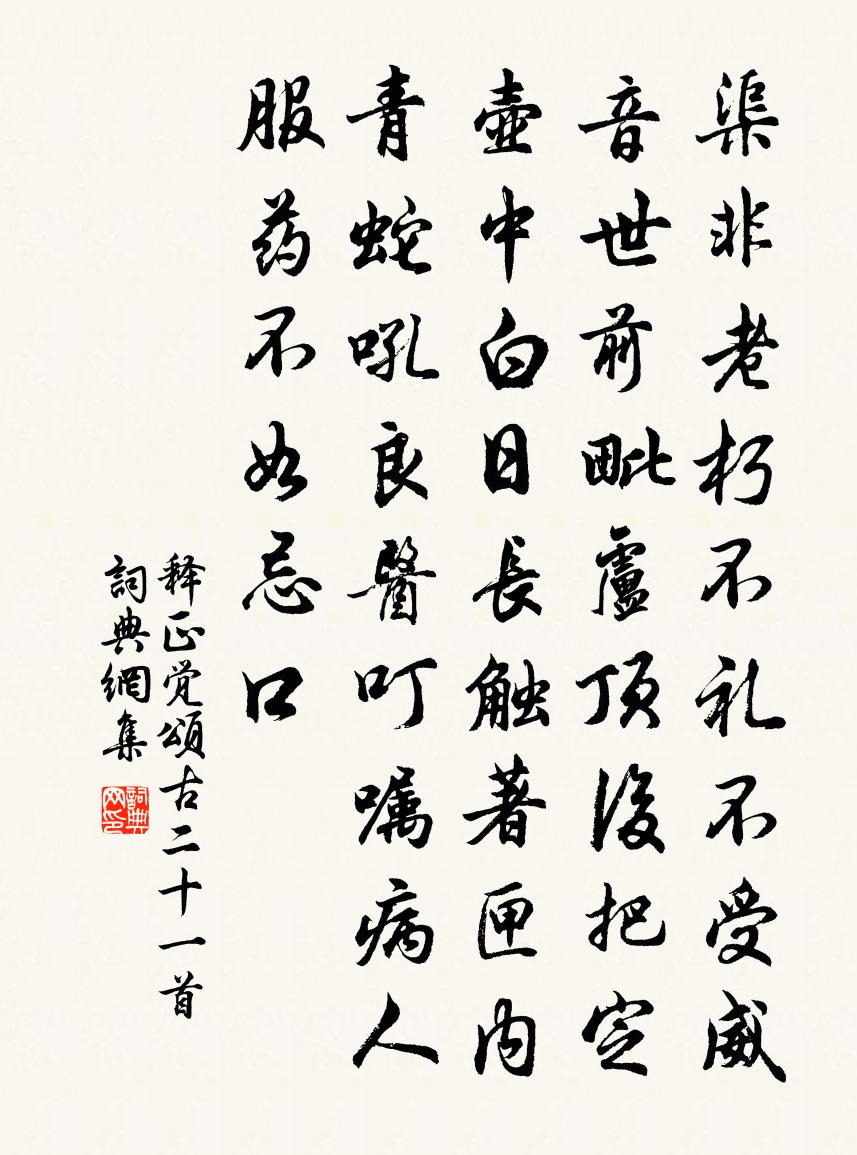 渠非老朽不礼不受威
音世前毗盧頂後把定
壺中白日長触著匣内
青蛇吼良醫叮嘱病人
服药不如忌口
释正觉頌古二十一首
詞典網集
詞典网印